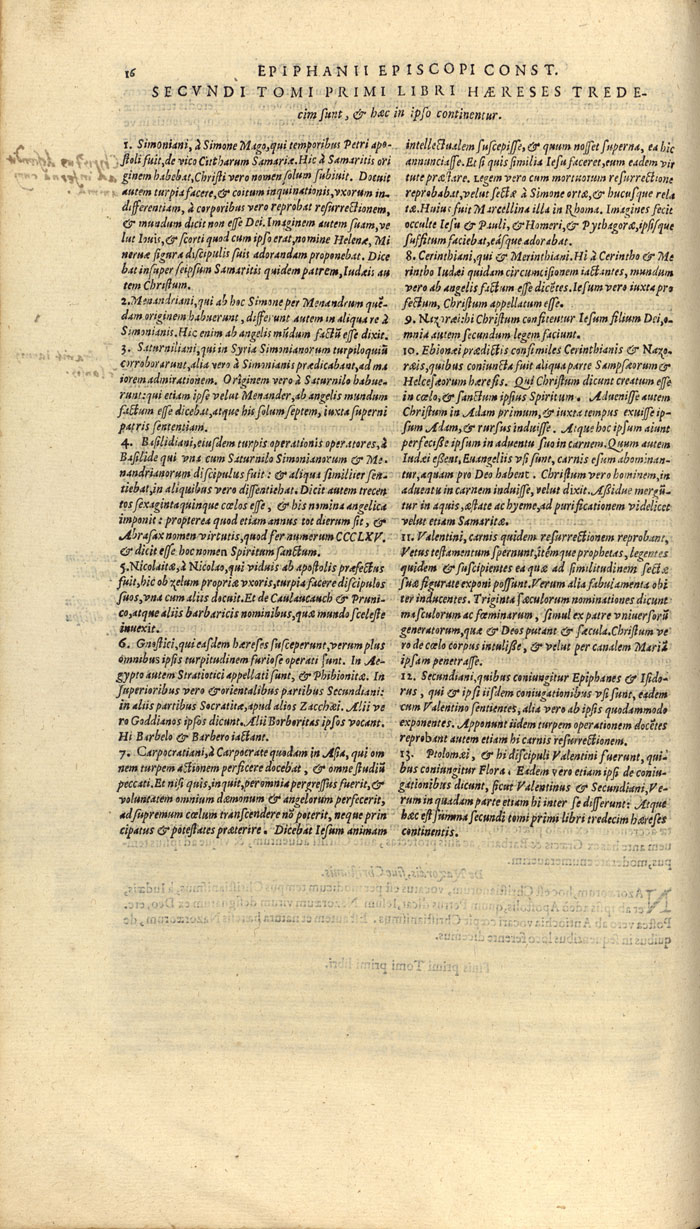 16
EPIPHANII EPISCOPI CONST.
SECVNDI TOMI PRIMI LIBRI HÆRESES TREDE-
cim sunt, & hæc in ipso continentur.
1. Simoniani, à Simone Mago, qui temporibus Petri apo-
stoli fuit, de vico Citthorum Samariæ. Hic à Samaritis ori
ginem habebat, Christi vero nomen solum subiuit. Docuit
autem turpia facere, & coitum inquinationis, vxorum in-
differentiam, à corporibus vero reprobat resurrectionem,
& mundum dicit non esse Dei. Imaginem autem suam, ve
lut Iouis, & scorti quod cum ipso erat, nomine Helenæ, Mi
neruæ figura discipulis suis adorandam proponebat. Dice
bat insuper seipsum Samaritis quidem patrem, Iudæis au
tem Christum.
2. Menandriani, qui ab hoc Simone per Menandrum quē-
dam originem habuerunt, differunt autem in aliqua re à
Simonianis. Hic enim ab angelis mūdum factū esse dixit.
3. Saturniliani, qui in Syria Simonianorum turpiloquiū
corroborarunt, alia vero à Simonianis prædicabant, ad ma
iorem admirationem. Originem vero à Saturnilo habue-
runt: qui etiam ipse velut Menander, ab angelis mundum
factum esse dicebat, atque his solum septem, iuxta superni
patris sententiam.
4. Basilidiani, eiusdem turpis operationis operatores, à
Basilide qui vna cum Saturnilo Simonianorum & Me-
nandrianorum discipulus fuit: & aliqua similiter sen-
tiebat, in aliquibus vero dissentiebat. Dicit autem trecen
tos sexagintaquinque cœlos esse, & his nomina angelica
imponit: propterea quod etiam annus tot dierum sit, &
Abrasax nomen virtutis, quod fer numerum CCCLXV.
& dicit esse hoc nomen Spiritum sanctum.
5. Nicolaitæ, à Nicolao, qui viduis ab apostolis præfectus
fuit, hic ob zelum propriæ vxoris, turpia facere discipulos
suos, vna cum aliis docuit. Et de Caulaucauch & Pruni-
co, atque aliis barbaricis nominibus, quæ mundo sceleste
inuexit.
6. Gnostici, qui easdem hæreses susceperunt, verum plus
omnibus ipsis turpitudinem furiose operati sunt. In Ae-
gypto autem Stratiotici appellati sunt, & Phibionitæ. In
superioribus vero & orientalibus partibus Secundiani:
in aliis partibus Socratitæ, apud alios Zacchæi. Alii ve
ro Goddianos ipsos dicunt. Alii Borboritas ipsos vocant.
Hi Barbelo & Barbero iactant.
7. Carpocratiani, à Carpocrate quodam in Asia, qui om
nem turpem actionem perficere docebat, & omne studiū
peccati. Et nisi quis, inquit, per omnia pergressus fuerit, &
voluntatem omnium dæmonum & angelorum perfecerit,
ad supremum cœlum transcendere nō poterit, neque prin
cipatus & potestates præterire. Dicebat Iesum animam
intellectualem suscepisse, & quum nosset superna, ea hic
annunciasse. Et si quis similia Iesu faceret, eum eadem vir
tute præstare. Legem vero cum mortuorum resurrectione
reprobabat, velut sectæ à Simone ortæ, & hucusque rela
tæ. Huius fuit Marcellina illa in Rhoma. Imagines fecit
occulte Iesu & Pauli, & Homeri, & Pythagoræ, ipsisque
suffitum faciebat, easque adorabat.
8. Cerinthiani, qui & Merinthiani. Hi à Cerintho & Me
rintho Iudæi quidam circumcisionem iactantes, mundum
vero ab angelis factum esse dicētes. Iesum vero iuxta pro
fectum, Christum appellatum esse.
9. Nazoræi hi Christum confitentur Iesum filium Dei, o-
mnia autem secundum legem faciunt.
10. Ebionæi prædictis consimiles Cerinthianis & Nazo-
ræis, quibus coniuncta fuit aliqua parte Sampsæorum &
Helcesæorum hæresis. Qui Christum dicunt creatum esse
in cœlo, & sanctum ipsius Spiritum. Aduenisse autem
Christum in Adam primum, & iuxta tempus exuisse ip-
sum Adam, & rursus induisse. Atque hoc ipsum aiunt
perfecisse ipsum in aduentu suo in carnem. Quum autem
Iudæi essent, Euangeliis vsi sunt, carnis esum abominan-
tur, aquam pro Deo habent. Christum vero hominem, in
aduentu in carnem induisse, velut dixit. Assidue mergū-
tur in aquis, æstate ac hyeme, ad purificationem videlicet
velut etiam Samaritæ.
11. Valentini, carnis quidem resurrectionem reprobant,
Vetus testamentum spernunt, itémque prophetas, legentes
quidem & suscipientes ea quæ ad similitudinem sectæ
suæ figurate exponi possunt. Verum alia fabulamenta obi
ter inducentes. Triginta sæculorum nominationes dicunt
masculorum ac fœminarum, simul ex patre vniuersorū
generatorum, quæ & Deos putant & sæcula. Christum ve
ro de cœlo corpus intulisse, & velut per canalem Mariā
ipsam penetrasse.
12. Secundiani, quibus coniungitur Epiphanes & Isido-
rus, qui & ipsi iisdem coniugationibus vsi sunt, eadem
cum Valentino sentientes, alia vero ab ipsis quodammodo
exponentes. Apponunt iidem turpem operationem docētes
reprobant autem etiam hi carnis resurrectionem.
13. Ptolomæi, & hi discipuli Valentini fuerunt, qui-
bus coniungitur Flora. Eadem vero etiam ipsi de coniu-
gationibus dicunt, sicut Valentinus & Secundiani, Ve-
rum in quadam parte etiam hi inter se differunt: Atque
hæc est summa secundi tomi primi libri tredecim hæreses
continentis.